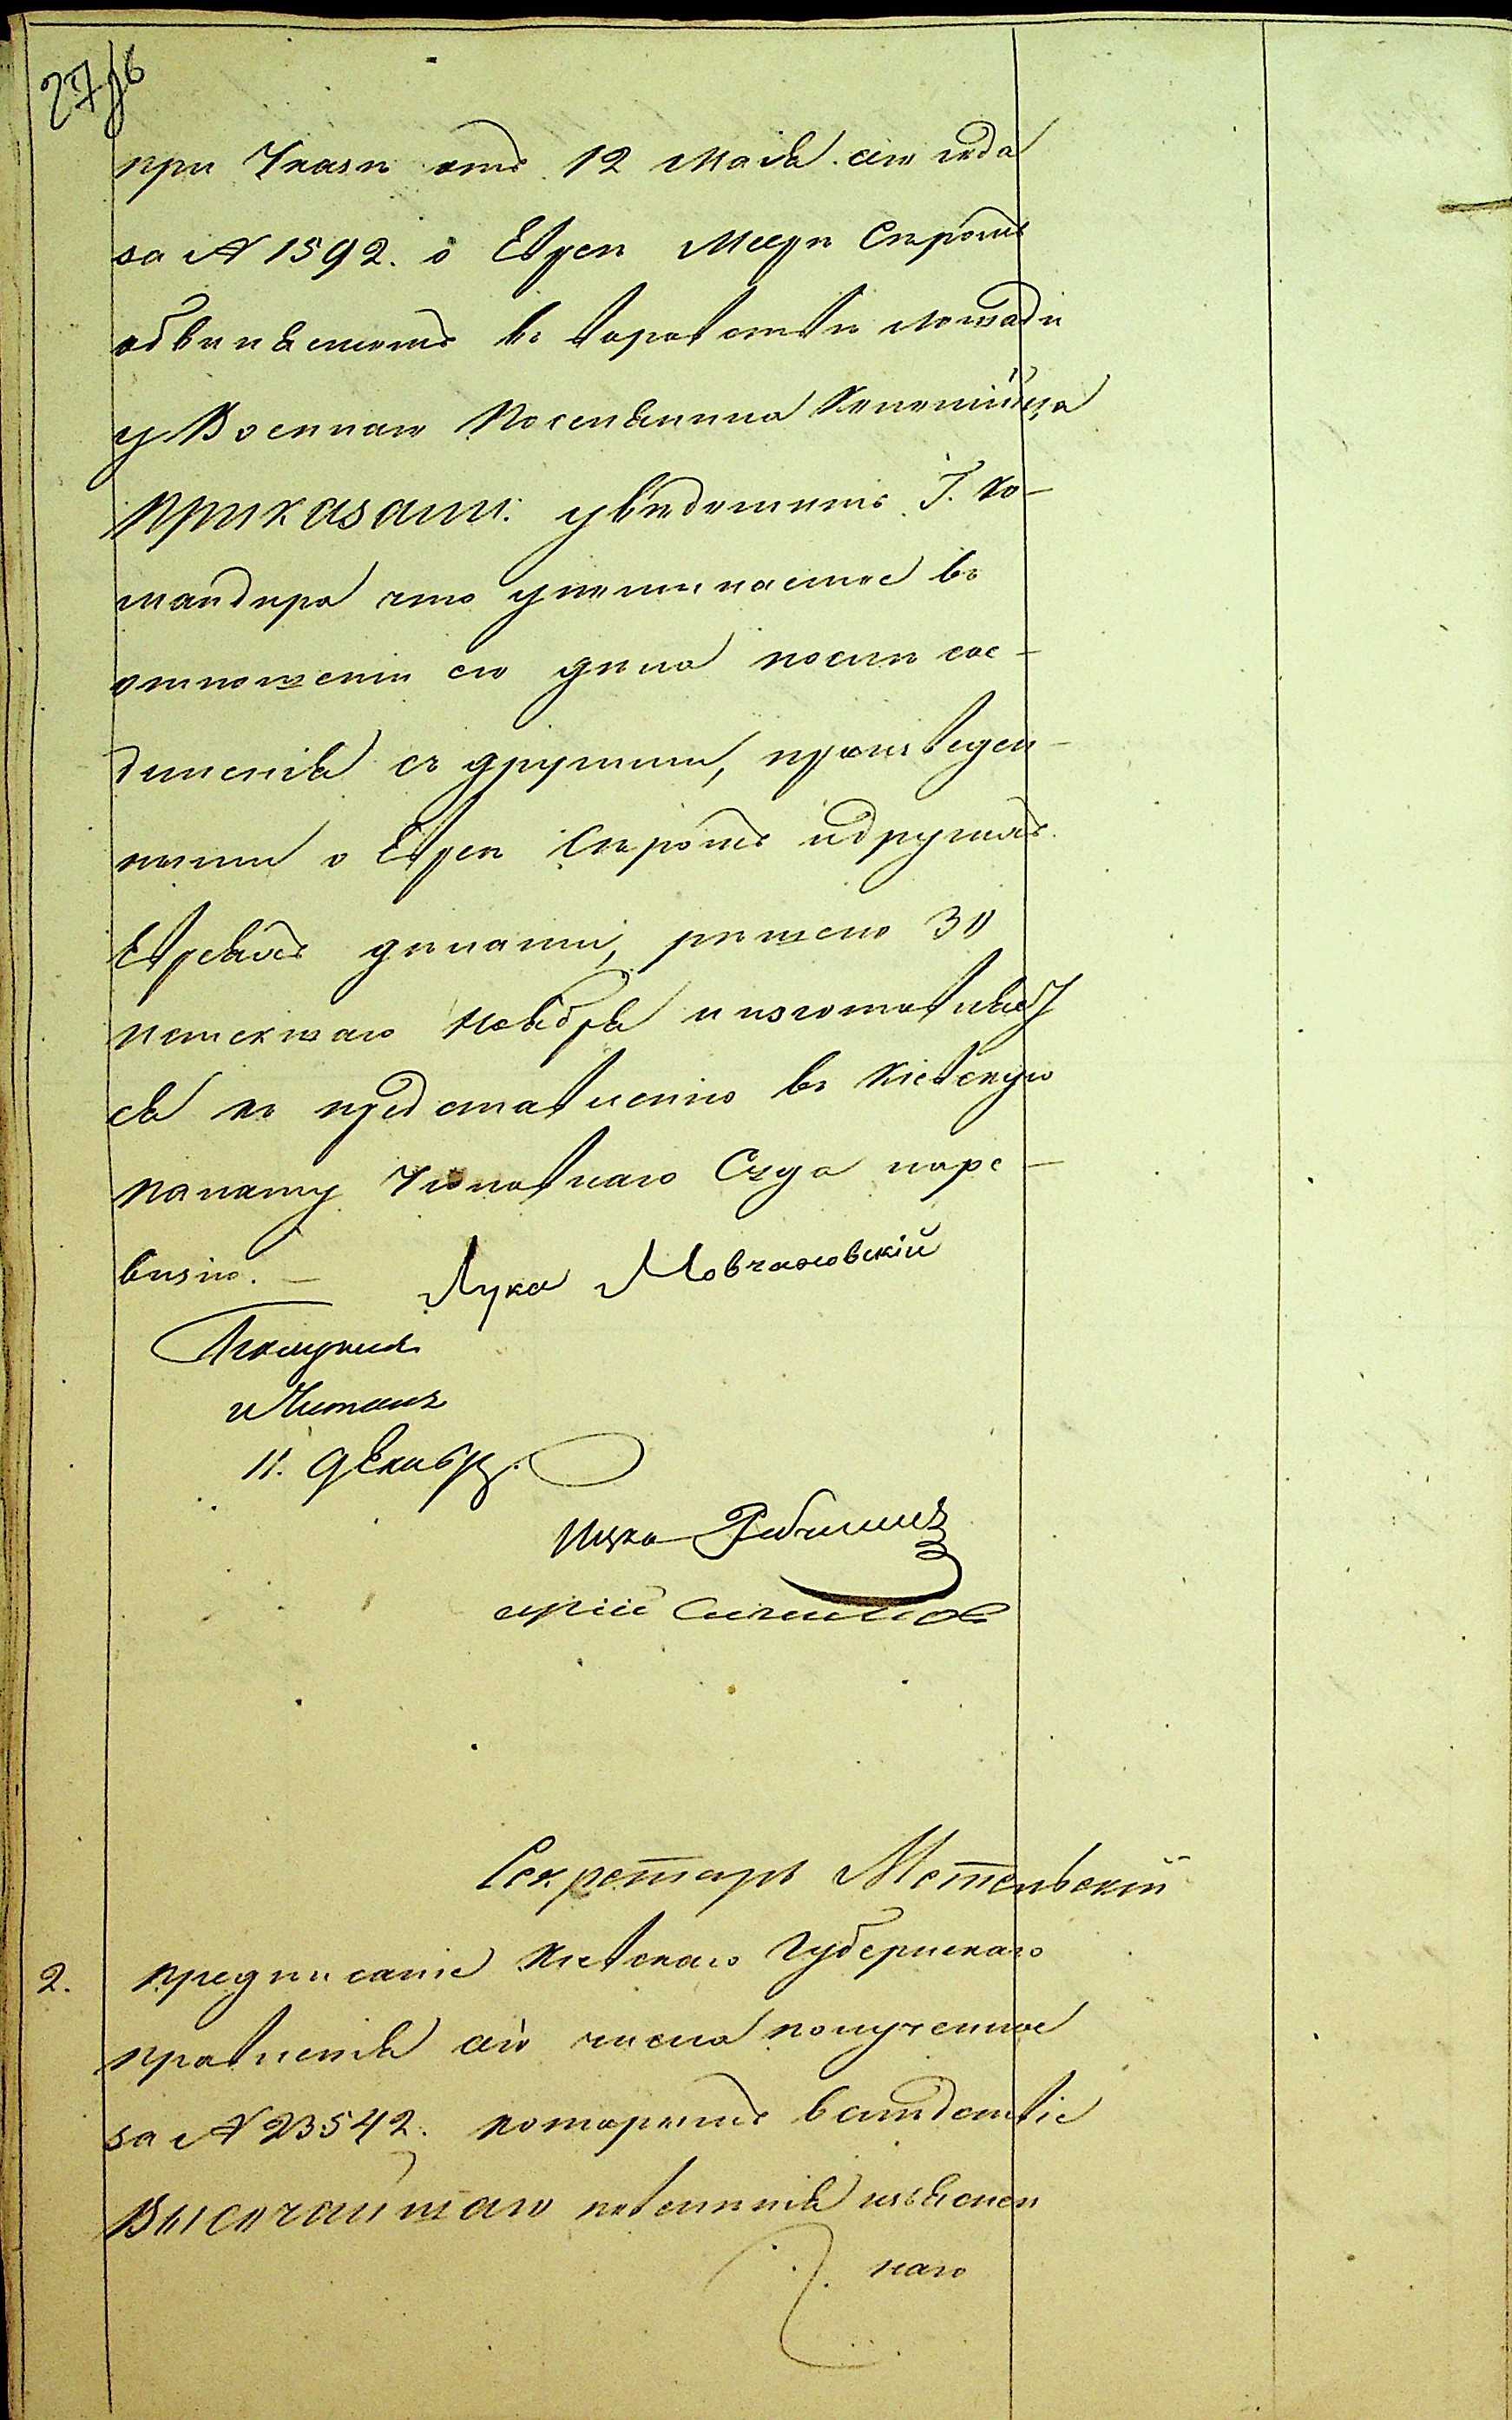 при Указѣ отъ 12 Маія сего года
за № 1592. о Евреѣ Меерѣ Скромъ
обвиняемомъ въ воровствѣ лошади
у Военнаго Поселянина
Приказали: увѣдомить Г. Ко-
мандира что упоминаемое въ
отношеніи его дѣло послѣ сое-
диненія съ другими, производен-
ными о Евреѣ Скромъ и другихъ
Евреяхъ дѣлами, рѣшено 30
истекшаго Ноября и изготовляет
ся къ представленію въ Кіевскую
Палату Уголовнаго Суда на ре-
визію. —
Лука Мовчановскій
и Читалъ
11. Декабря.
Ицко
Секретарь Метельскій
2. Предписаніе Кіевскаго Губернскаго
Правленія сего числа полученное
за № 23542. которымъ вслѣдствіе
Высочайшаго повелѣнія изъяснен
наго